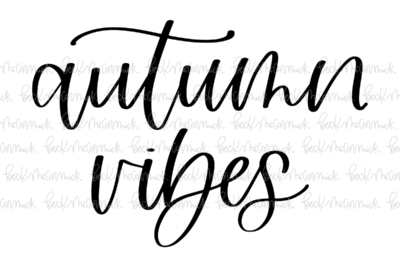 autumn
vibes